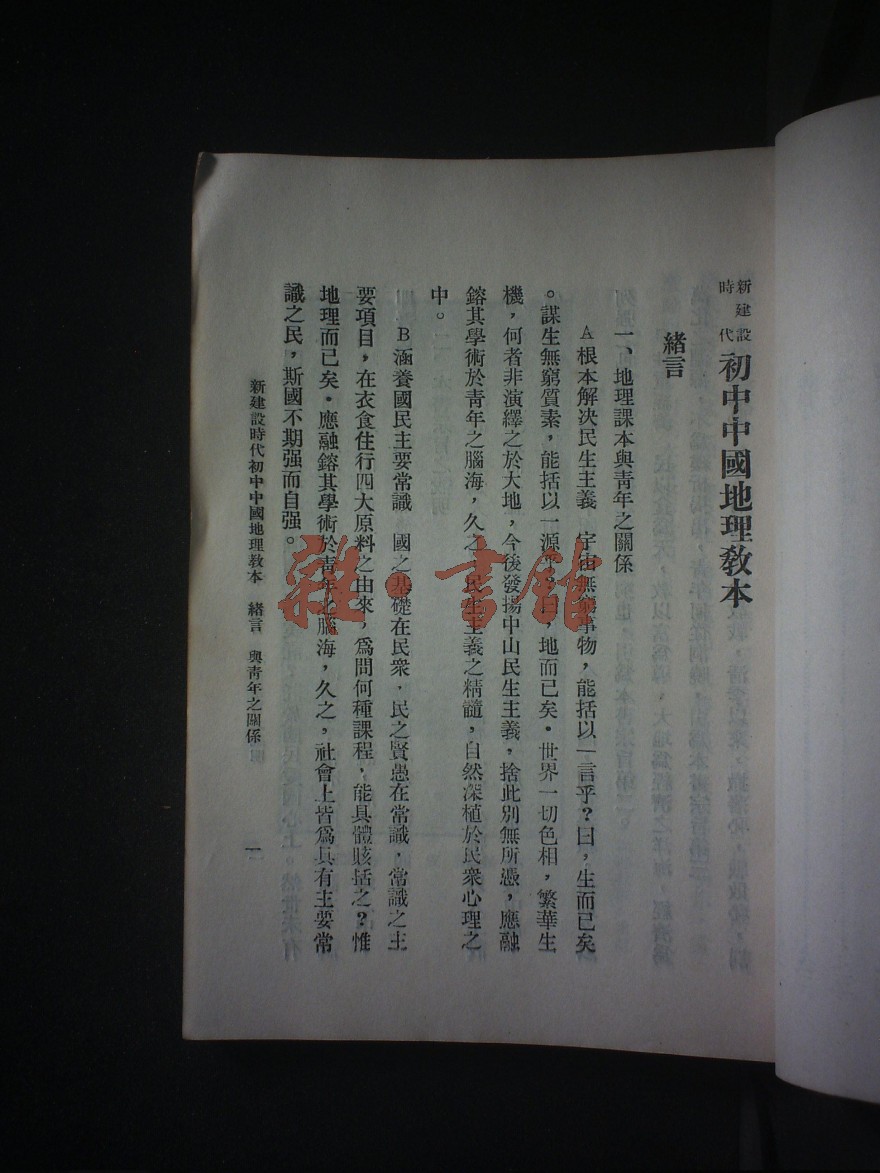 新建設時代
初中中國地理教本
緒言
一、地理課本與靑年之關係
A 根本解決民生主義 宇宙無窮事物，能括以一言乎？曰，生而已矣
。謀生無窮質素，能括以一源乎？曰，地而已矣。世界一切色相，繁華生
機，何者非演繹之於大地，今後發揚中山民生主義，捨此別無所憑，應融
鎔其學術於靑年之腦海，久之，民生主義之精髓，自然深植於民衆心理之
中。
B 涵養國民主要常識 國之基礎在民衆，民之賢愚在常識，常識之主
要項目，在衣食住行四大原料之由來，爲問何種課程，能具體賅括之？惟
地理而已矣。應融鎔其學術於靑年之腦海，久之，社會上皆爲具有主要常
識之民，斯國不期强而自强。
新建設時代初中中國地理教本 緒言 與靑年之關係
一
雜·書館